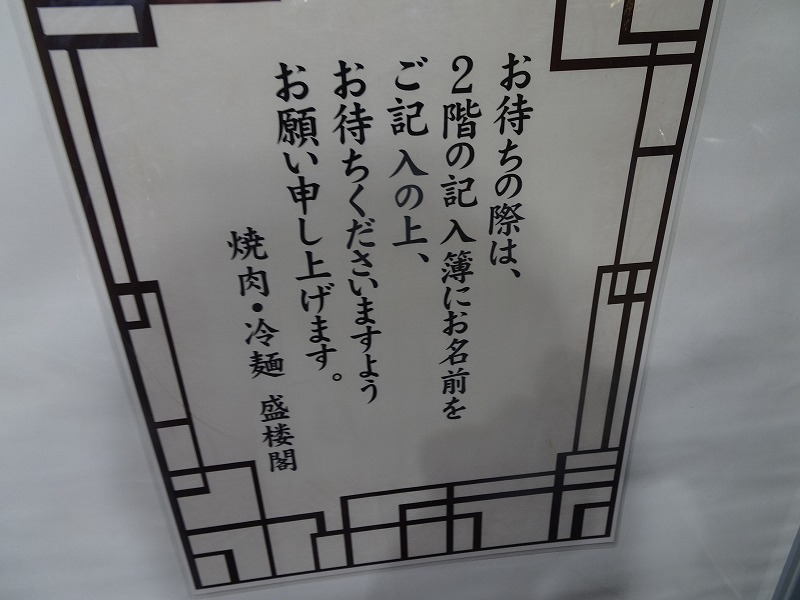 お待ちの際は、
２階の記入簿にお名前を
ご記入の上、
お待ちくださいますよう
お願い申し上げます。
焼肉・冷麺 盛楼閣